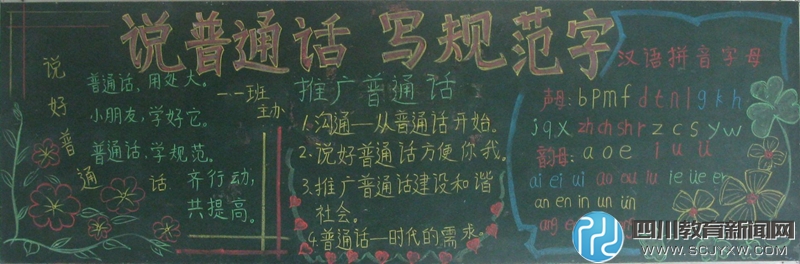 说普通话 写规范字
说好普通话
普通话,用处大。
小朋友,学好它。
普通话,学规范。
齐行动,
共提高。
一一班
主办
推广普通话
1.沟通—从普通话开始。
2.说好普通话方便你我。
3.推广普通话建设和谐
社会。
4.普通话—时代的需求。
汉语拼音字母
声母:b p m f d t n l g k h
j q x zh ch sh r z c s y w
韵母:a o e i u ü
ai ei ui ao ou iu ie üe er
an en in un ün
ang
四川教育新闻网
WWW.SCJYXW.COM